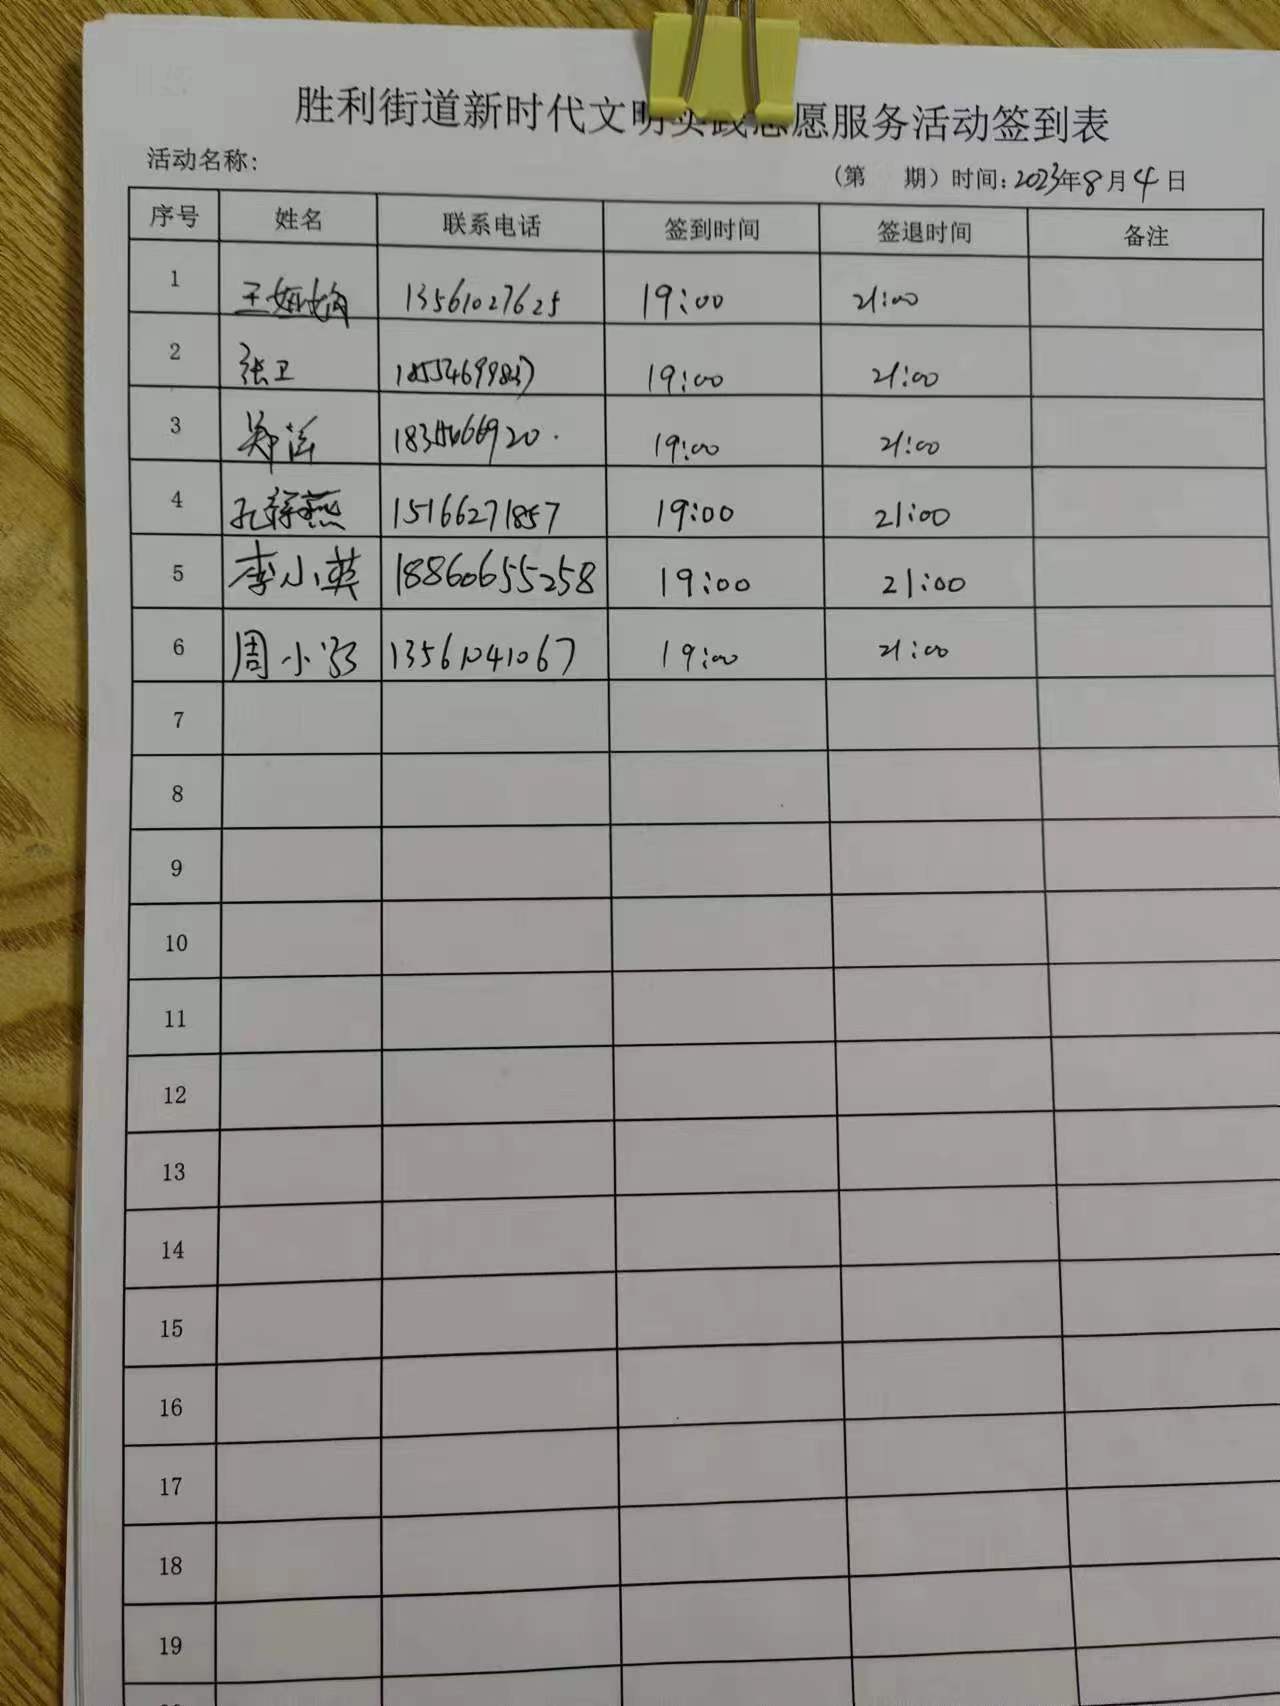 胜利街道新时代文明实践志愿服务活动签到表
活动名称:
(第 期) 时间:2023年8月4日
序号 姓名 联系电话 签到时间 签退时间 备注
1 王 13561027625 19:00 21:00
2 张卫 19:00 21:00
3 郑洁 19:00 21:00
4 孔 燕 15166271857 19:00 21:00
5 李小英 18860655258 19:00 21:00
6 周小 13561041067 19:00 21:00
7
8
9
10
11
12
13
14
15
16
17
18
19